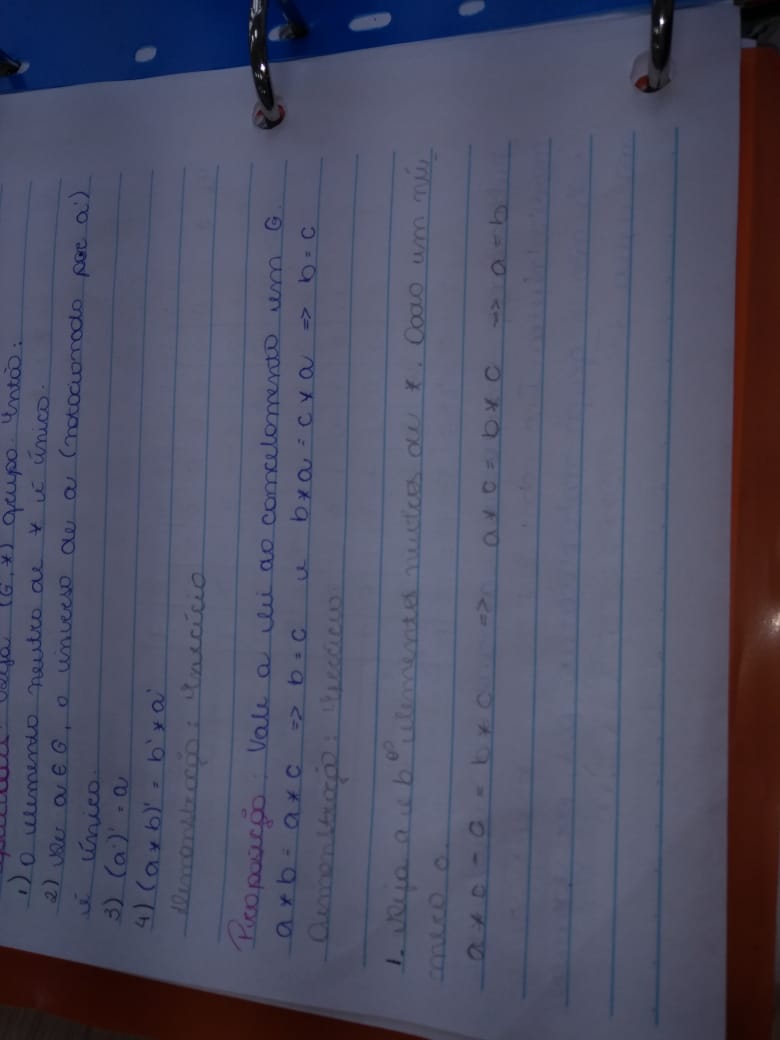 Seja (G, *) grupo. Então:
1) O elemento neutro de * é único.
2) Se a ∈ G, o inverso de a (notacionado por a')
é único.
3) (a')' = a
4) (a * b)' = b' * a'
Demonstração: Exercício
Proposição: Vale a lei do cancelamento em G.
a * b = a * c => b = c e b * a = c * a => b = c
Demonstração: Exercício.
1. Seja a e b elementos neutros de *. Dado um nú-
mero c.
a * c = c = b * c => a * c = b * c => a = b